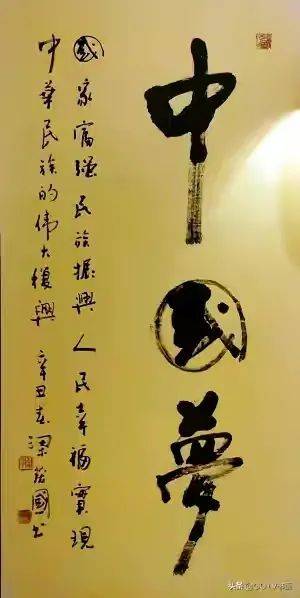 中國夢
國家富强民族振興人民幸福實現
中華民族的偉大復興 辛丑春 梁國书
头条